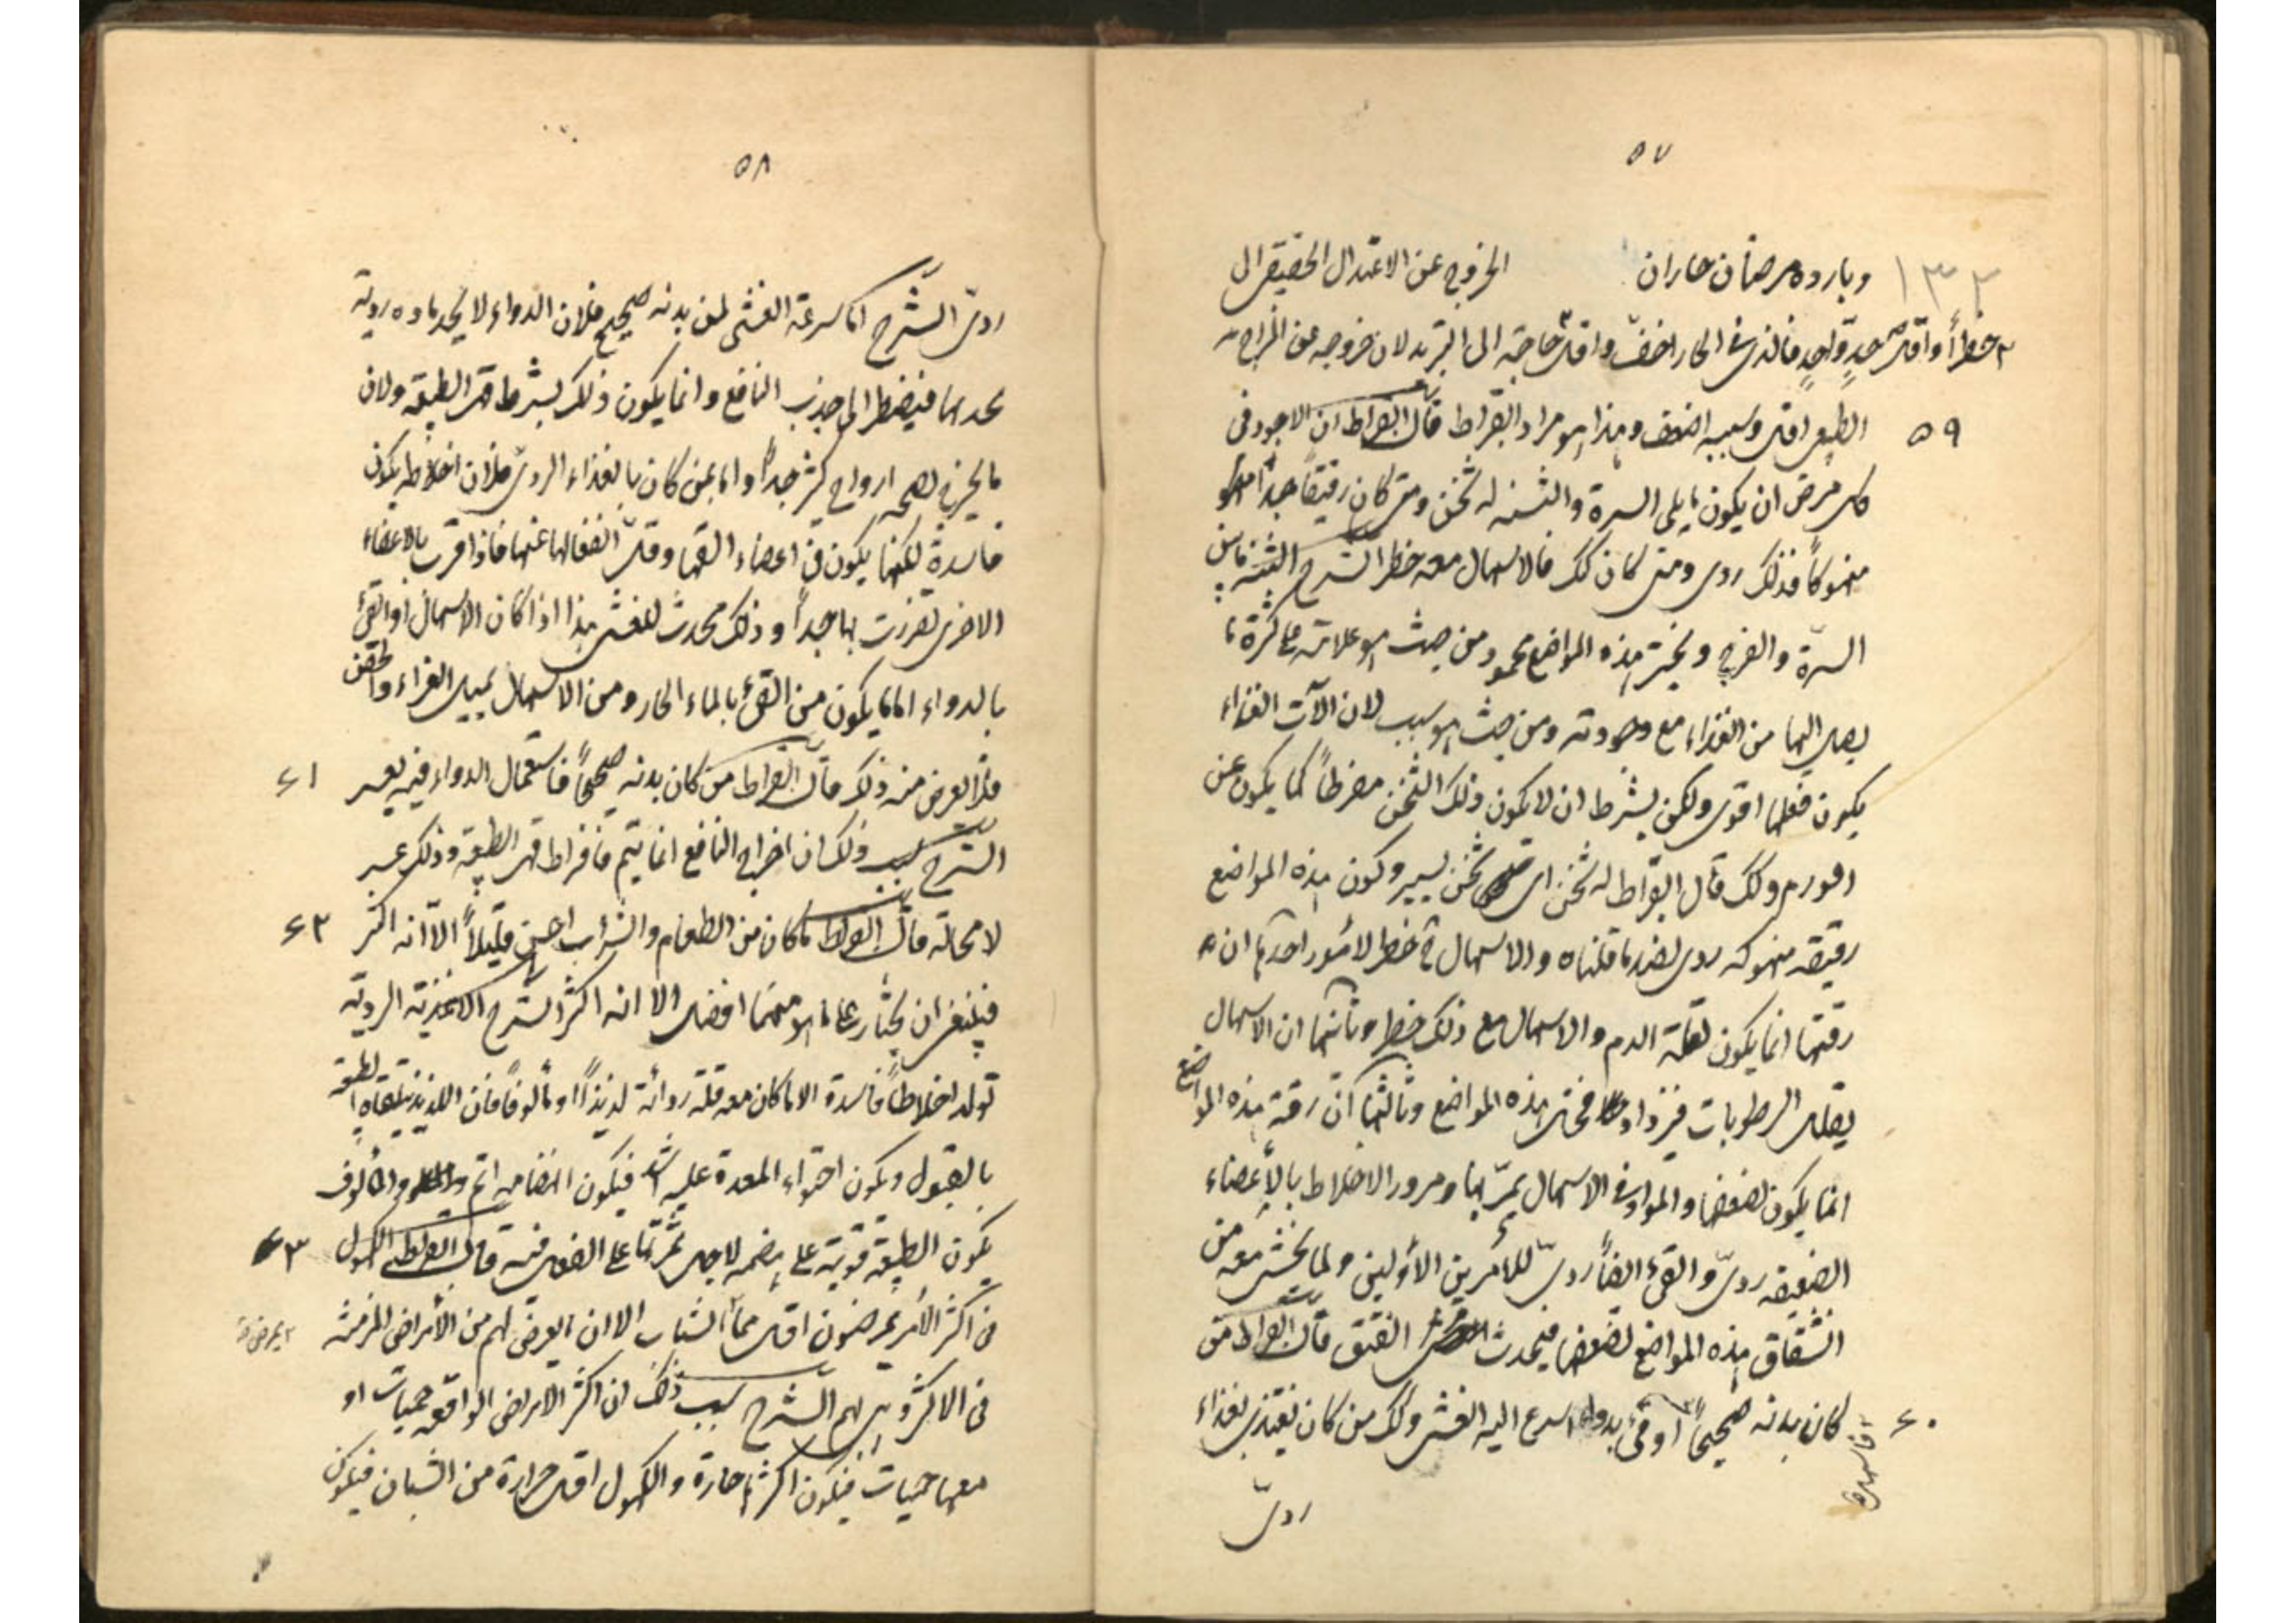 ٥٧
١٣٢
وبارده مرضان حاران الخروج عن الاعتدال الحقيقي الى
خطرا واقل حد واحد فالذي في الحار اخف واقل حاجة الى التبريد لان خروجه عن المزاج
٥٩
الطبيعي اقل وسببه اضعف وهذا هو مراد ابقراط قال ابقراط ان الاجود في
كل مرض ان يكون ما يلي السرة والثنه له ثخن ومتى كان رقيقا جدا
منهوكا فذلك ردي ومتى كان كك فالاسهال معه خطر الشرح الثنه ما بين
السرة والفرج وثخن هذه المواضع محمود من حيث هو علامة على كثرة ما
يصل اليها من الغذاء مع وجودته ومن حيث هو سبب لان الآت الغذاء
يكون فعلها اقوى ولكن بشرط ان لا يكون ذلك الثخن مفرطا كما يكون عن
الورم ولك قال ابقراط له ثخن اي ثخن يسير وكون هذه المواضع
رقيقه منهوكه ردي لضد ما قلناه والاسهال خطر لامور احدها ان
رقتها انما يكون لقلة الدم والاسهال مع ذلك خطر وثانيها ان الاسهال
يقلل الرطوبات فيزداد هذه المواضع وثالثها ان رقة هذه المواضع
انما يكون لضعفها والمواد في الاسهال يمر بها ومرور الاخلاط بالاعضاء
الضعيفه ردي والقئ ايضا ردي للامرين الاولين ولما يخشى معه من
انشقاق هذه المواضع لضعفها فيحدث الفتق قال ابقراط من
٦٠
كان بدنه صحيحا او قئ بدواء اسرع اليه الغشى وكك من كان يغتذي بغذاء
فاسهل
ردي
٥٨
ردي الشرح اما سرعة الغشى لمن بدنه صحيح فلان الدواء لا يجد مادة ردية
يجذبها فيضطر الى جذب النافع وانما يكون ذلك بشرط قهر الطبيعة ولان
ما يخرج لصحه ارواح كثر جدا واما بمن كان بالغذاء الردي فلان اخلاطه يكون
فاسدة لكنها يكون في اعضاء القها وقل انفعالها عنها فاذا قرب بالاعضاء
الاخرى تضررت بها جدا وذلك محدث للغشى هذا اذا كان الاسهال او القئ
بالدواء اما ما يكون من القئ بالماء الحار ومن الاسهال بمثل الغراء والحقن
٦١
فلا يعرض منه ذلك قال ابقراط من كان بدنه صحيحا فاستعمال الدواء فيه يعسر
الشرح سبب ذلك ان اخراج النافع انما يتم بافراط قهر الطبيعة وذلك عسر
٦٢
لا محالة قال ابقراط ما كان من الطعام والشراب اخس قليلا الا انه الذ
فينبغي ان يختار على ما هو منهما افضل الا انه اكثر الشرح الاغذية الردية
تولد اخلاطا فاسدة الا ما كان معه قلة ردائة لذيذا او مألوفا فان اللذيذ يتلقاه الطبيعة
بالقبول ويكون احتواء المعدة عليه اشد فيكون انهضامه اتم والمألوف
٦٣
يكون الطبيعة قوية على هضمه لاجل تمرنها على الفعل فيه قال ابقراط الكهول
في اكثر الامر يمرضون اقل مما الشباب الا ان ما يعرض لهم من الامراض المزمنة
في الاكثر وهي بهم الشرح سبب ذلك ان اكثر الامراض الواقعه حميات او
معها حميات فيكون اكثرها حارة والكهول اقل حرارة من الشبان فيكون